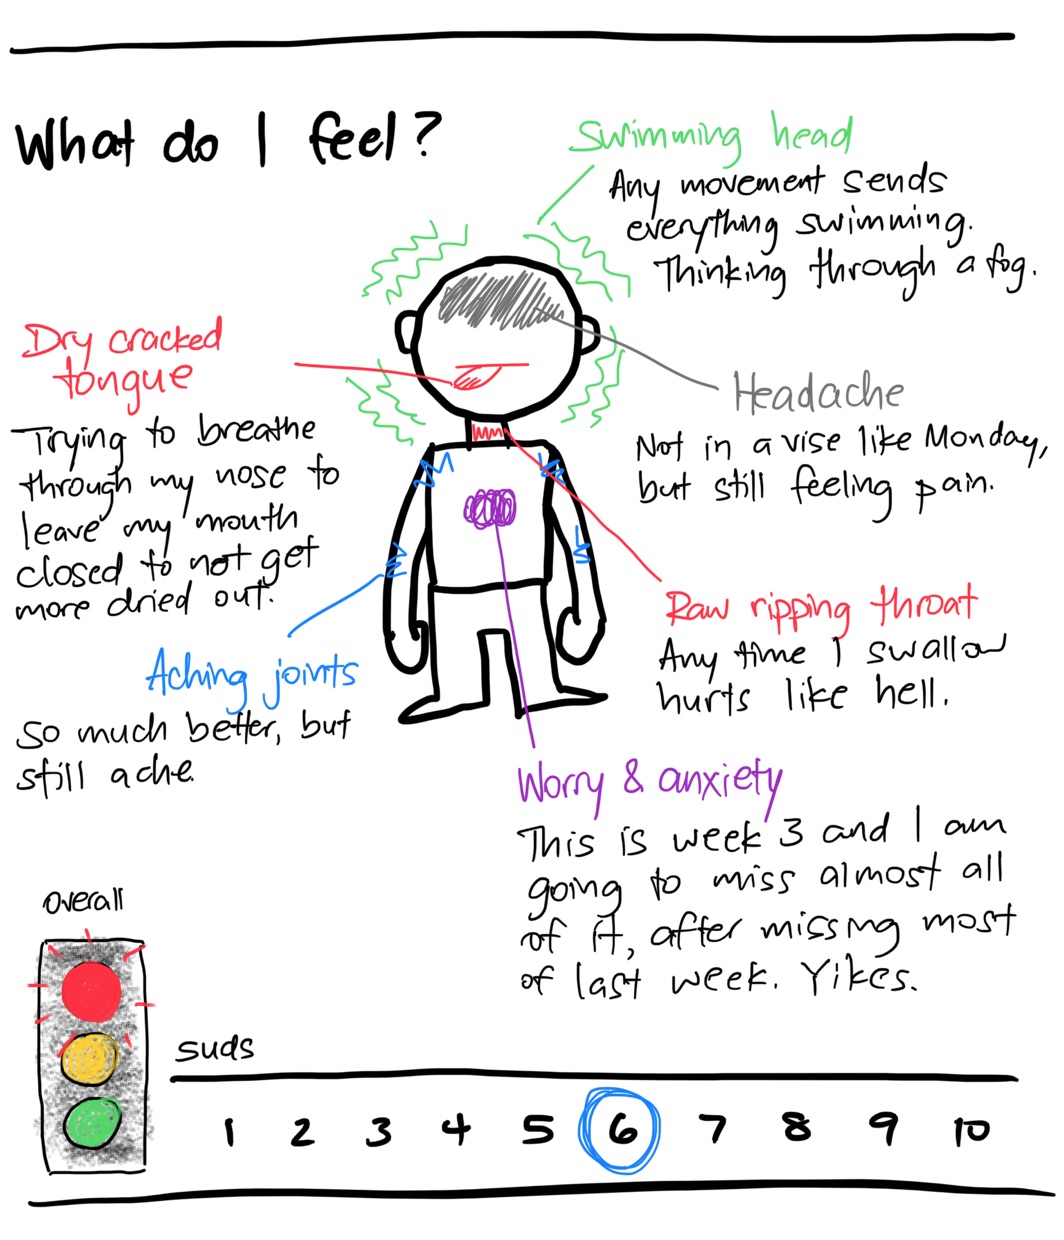 What do I feel?
Swimming head
Any movement sends
everything swimming.
Thinking through a fog.
Dry cracked
tongue
Trying to breathe
through my nose to
leave my mouth
closed to not get
more dried out.
Headache
Not in a vise like Monday,
but still feeling pain.
Raw ripping throat
Any time I swallow
hurts like hell.
Aching joints
So much better, but
still ache.
Worry & anxiety
This is week 3 and I am
going to miss almost all
of it, after missing most
of last week. Yikes.
overall
suds
1 2 3 4 5 6 7 8 9 10